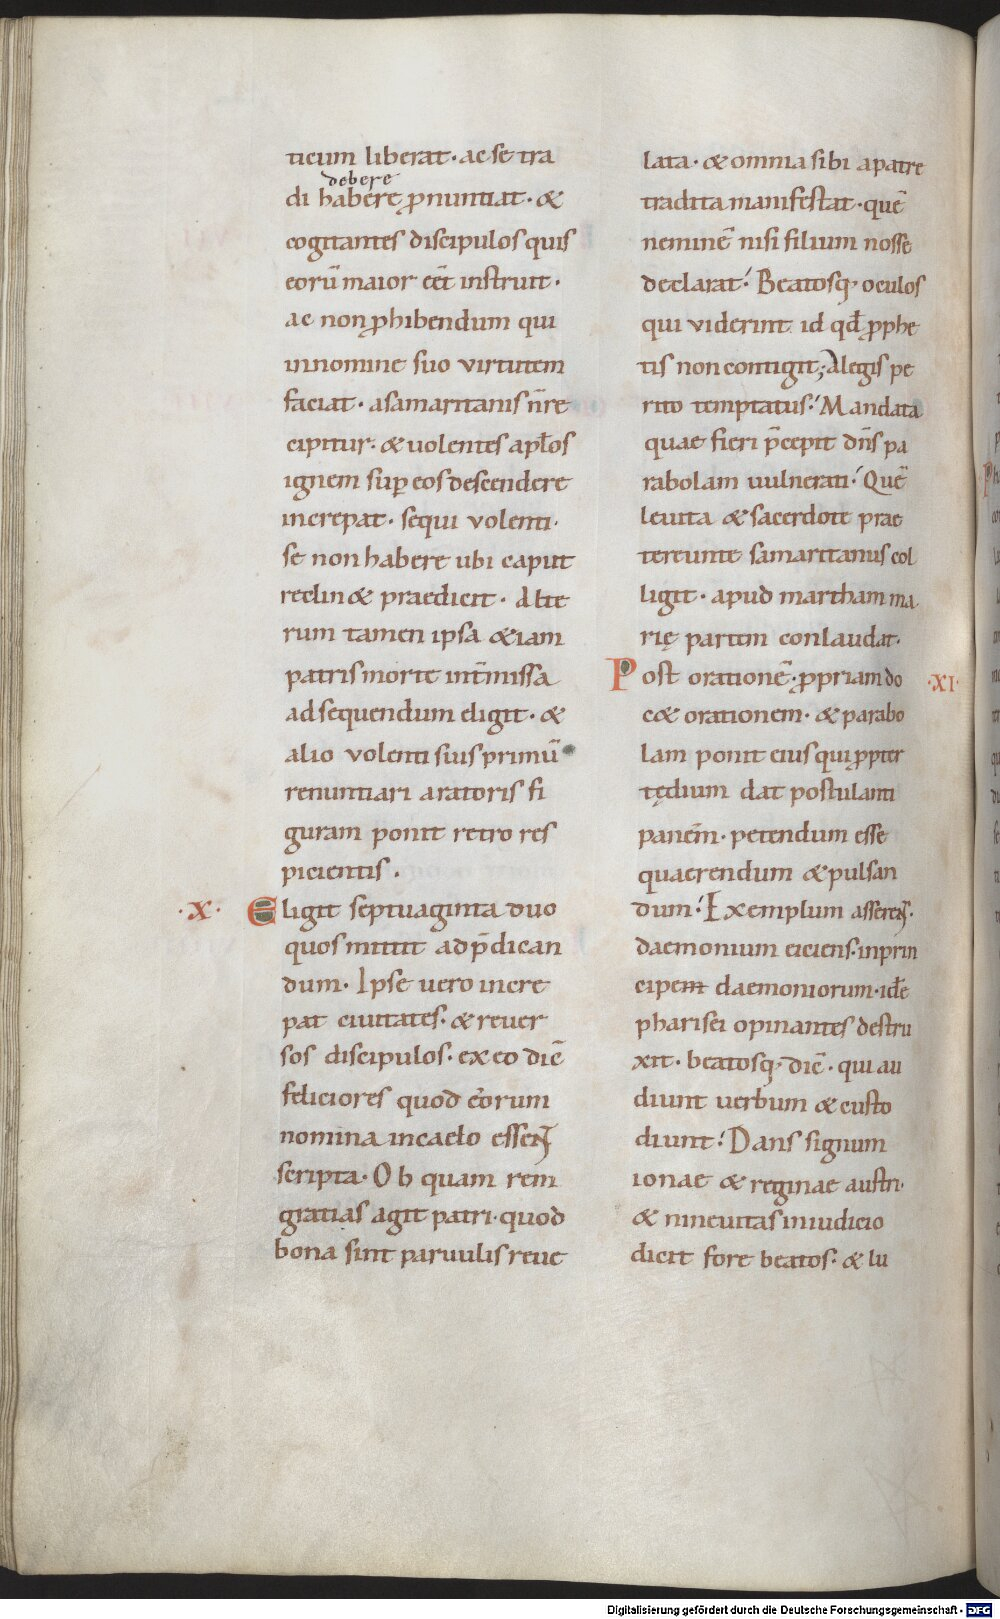 ticum liberat· ac se tra
debere
di habere ꝓnuntiat· &
cogitantes discipulos quis
eorū maior eēt instruit·
ac non ꝓhibendum qui
in nomine suo virtutem
faciat· a samaritanis n̄ re
cipitur· & uolentes apłos
ignem suꝑ eos descendere
increpat· sequi volenti·
se non habere ubi caput
reclin& praedicit· Alte
rum tamen ipsa &iam
patris morte int̄missa
ad sequendum eligit· &
alio volenti suis primū
renuntiari aratoris fi
guram ponit retro res
picientis·
·X· Eligit septuaginta duo
quos mittit ad p̄dican
dum· Ipse uero incre
pat ciuitates· & reuer
sos discipulos· ex eo diē
feliciores quod eorum
nomina in caelo essent
scripta· Ob quam rem
gratias agit patri· quod
bona sint paruulis reue
lata· & omnia sibi a patre
tradita manifestat· quē
neminē nisi filium nosse
declarat· Beatosq· oculos
qui viderint id qđ ꝓphe
tis non contigit; A legis pe
rito temptatus· Mandata
quae fieri p̄cepit dn̄s pa
rabolam uulnerati· Quē
leuita & sacerdote prae
tereunte samaritanus col
ligit· apud martham ma
rię partem conlaudat·
Post orationē· ꝓpriam do ·XI·
c& orationem· & parabo
lam ponit eius qui ꝓpter
tędium dat postulanti
panem· petendum esse
quaerendum & pulsan
dum· Exemplum asserens·
daemonium eiciens· in prin
cipem daemoniorum· idē
pharisei opinantes destru
xit· beatosq· diē· qui au
diunt uerbum & custo
diunt· Dans signum
ionae & reginae austri·
& nineuitas in iudicio
dicit fore beatos· & lu
Digitalisierung gefördert durch die Deutsche Forschungsgemeinschaft - DFG